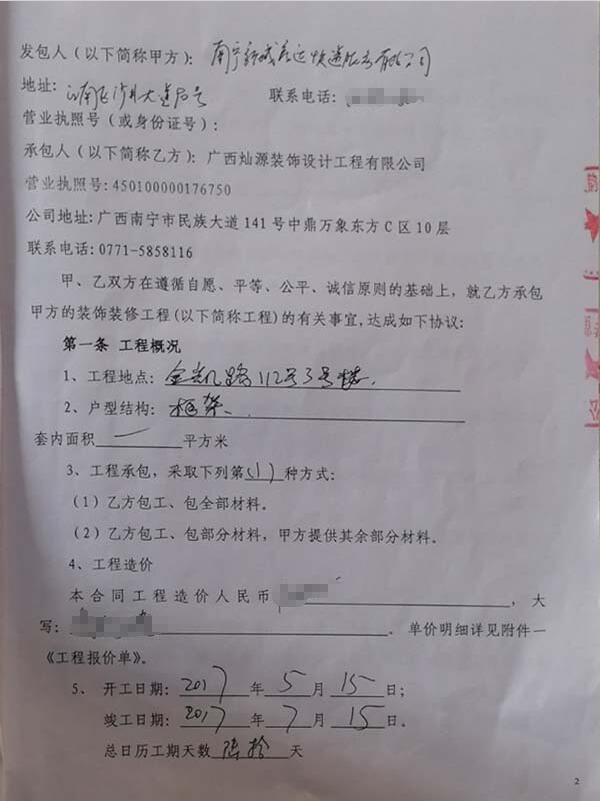 发包人（以下简称甲方）：南宁新成差运快递服务有限公司
地址：江南区沙井大道50号 联系电话：
营业执照号（或身份证号）：
承包人（以下简称乙方）：广西灿源装饰设计工程有限公司
营业执照号:450100000176750
公司地址:广西南宁市民族大道 141 号中鼎万象东方 C 区 10 层
联系电话:0771-5858116
甲、乙双方在遵循自愿、平等、公平、诚信原则的基础上，就乙方承包
甲方的装饰装修工程(以下简称工程)的有关事宜,达成如下协议:
第一条 工程概况
1、工程地点：金凯路112号3号楼.
2、户型结构：框架、
套内面积 一 平方米
3、工程承包，采取下列第(1)种方式：
（1）乙方包工、包全部材料。
（2）乙方包工、包部分材料，甲方提供其余部分材料。
4、工程造价
本合同工程造价人民币 ，大
写： 。单价明细详见附件一
《工程报价单》。
5、开工日期：2017年5月15日；
竣工日期：2017年7月15日。
总日历工期天数 陆拾 天
2